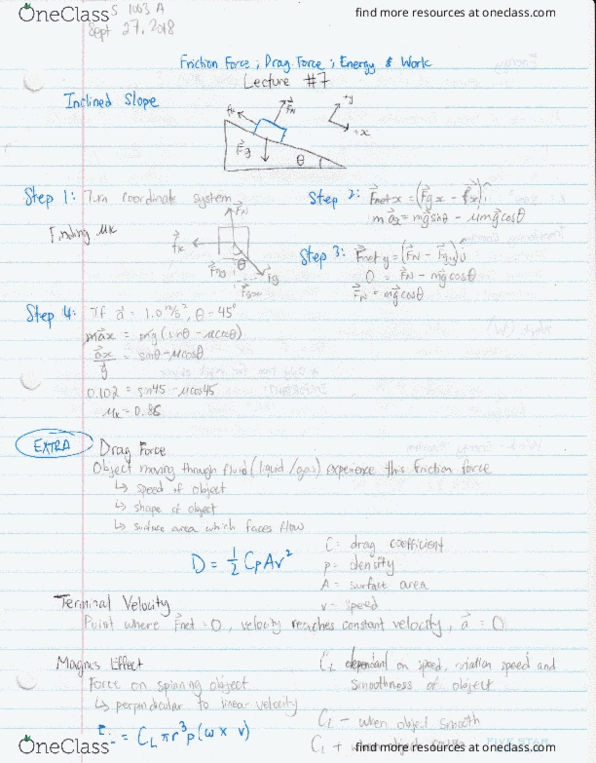 OneClass
find more resources at oneclass.com
S 1003 A
Sept 27, 2018
Friction Force ; Drag Force ; Energy & Work
Lecture #7
Inclined Slope
fk
FN
+y
+x
Fg
θ
Step 1: Turn coordinate system
Finding μk
FN
fk
Fg
θ
Step 2: Fnet x = (Fgx - fx)î
max = mgsinθ - μmgcosθ
Step 3: Fnet y = (FN - Fgy)ĵ
0 = FN - mgcosθ
FN = mgcosθ
Step 4: If a = 1.0 m/s², θ = 45°
max = mg(sinθ - μcosθ)
ax/g = sinθ - μcosθ
0.102 = sin45 - μcos45
μk = 0.86
EXTRA
Drag Force
Object moving through fluid (liquid/gas) experience this friction force
↳ speed of object
↳ shape of object
↳ surface area which faces flow
D = 1/2 CρAv²
C = drag coefficient
ρ = density
A = surface area
v = speed
Terminal Velocity
Point where Fnet = 0, velocity reaches constant velocity, a = 0
Magnus Effect
Force on spinning object
↳ perpendicular to linear velocity
= CL πr³ρ(ω x v)
CL dependant on speed, rotation speed and
smoothness of object
CL - when object smooth
CL + when object
OneClass
find more resources at oneclass.com